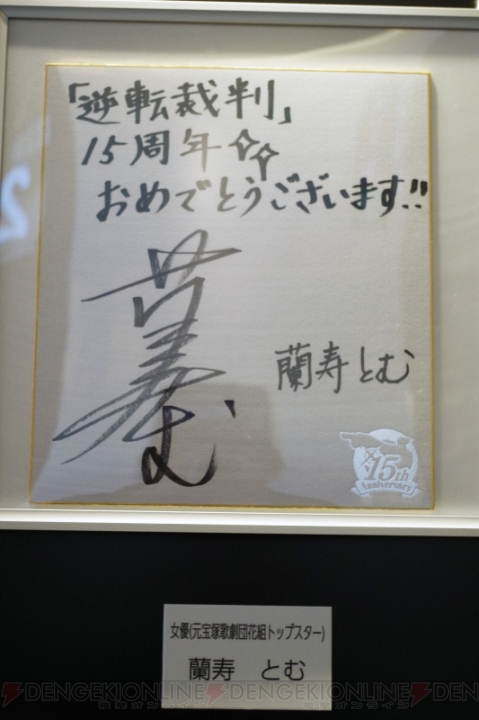 「逆転裁判」
15周年☆☆
おめでとうございます!!
蘭寿とむ
15th
Anniversary
女優(元宝塚歌劇団花組トップスター)
蘭寿 とむ
DENGEKIONLINE DENGEKIONLINE